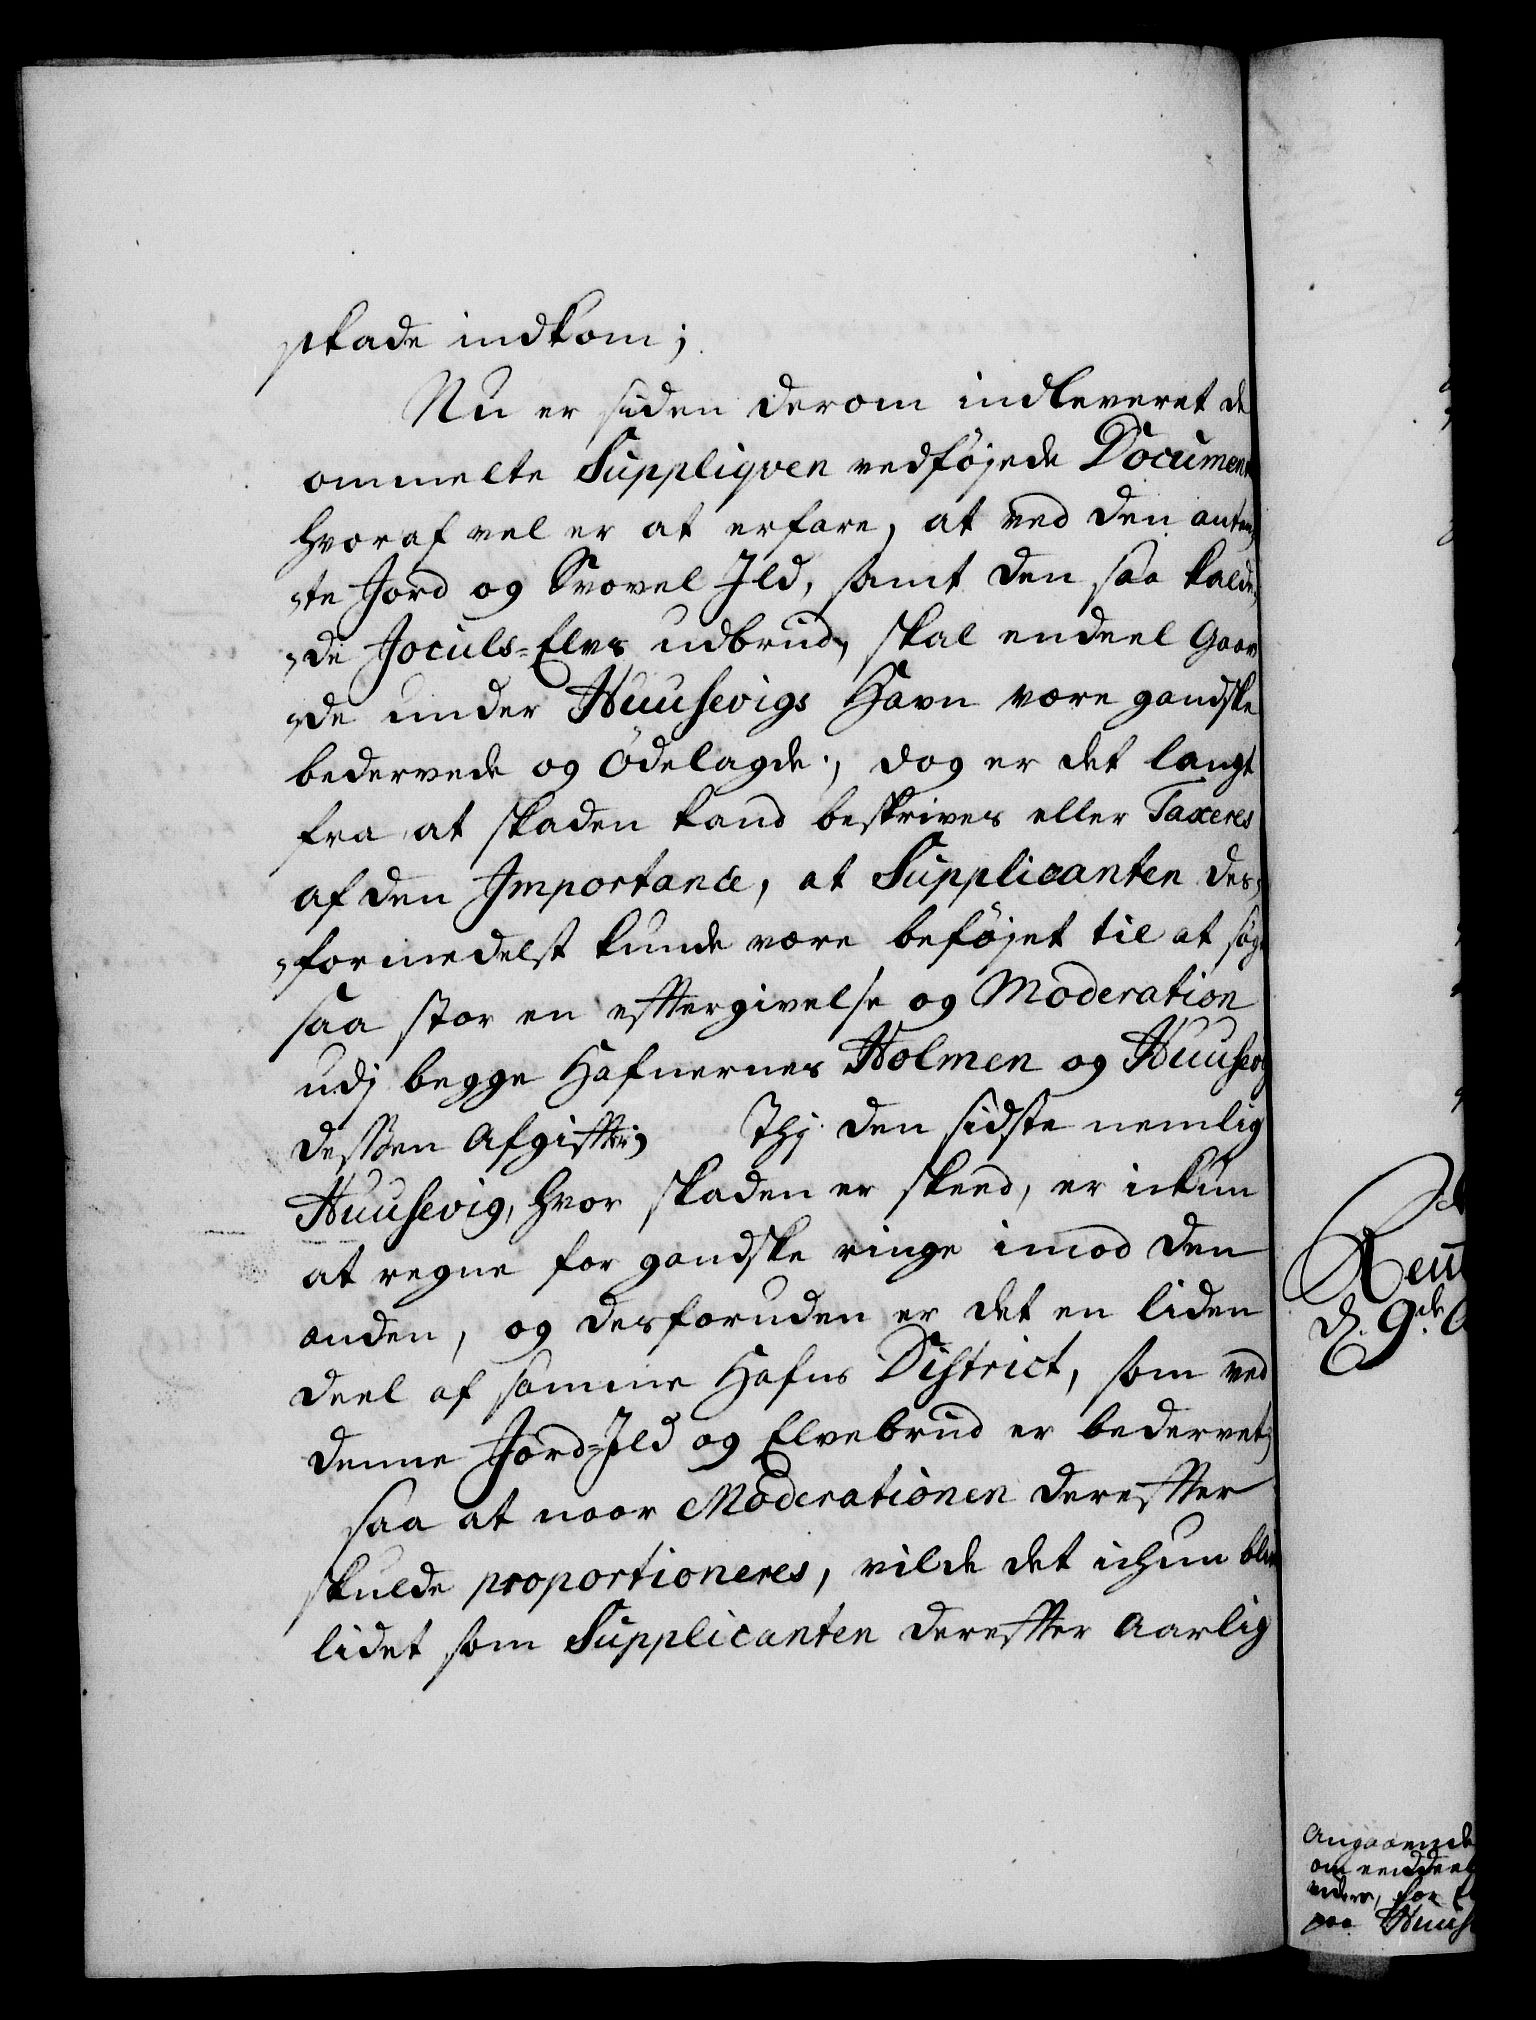 skade indkom;
Nu er siden derom indleveret de
ommelte Suppliqven vedføjede Document
hvoraf vel er at erfare, at ved den anten
„te Jord og Svovel Ild, samt den saa kalde„
„de Joculs-Elvs udbrud, skal endeel Gaar
„de under Huusevigs Havn være gandske
bedervede og Ödelagde; dog er det langt
fra at skaden kand beskrives eller Taxeres
af den Importance, at Supplicanten des„
„formedelst kunde være beføjet til at søge
saa stor en efftergivelse og Moderation
udj begge Hafnernes Holmen og Huusevig
dessen Afgiffter; Thj den sidste nemlig
Huusevig, hvor skaden er skeed, er ickun
at regne for gandske ringe imod den
anden, og desforuden er det en liden
deel af samme Hafns District, som ved
denne Jord-Ild og Elvebrud er bedervet;
saa at naar Moderationen dereffter
skulde proportioneres, vilde det ichun blive
lidet som Supplicanten dereffter Aarlig
Rent
d. 9de
Angaaende
om eendeel
for
paa Huus